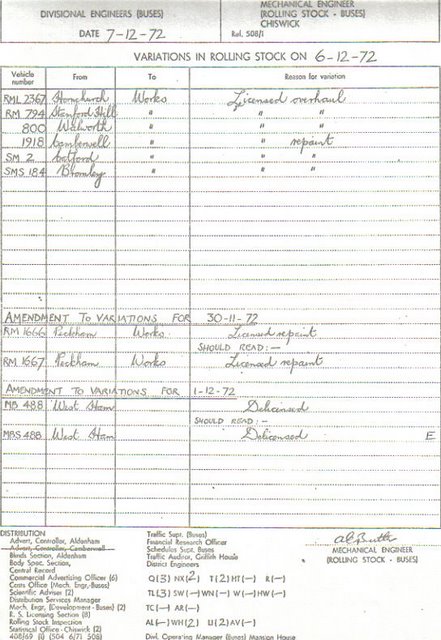 DIVISIONAL ENGINEERS (BUSES)
DATE 7-12-72
MECHANICAL ENGINEER
(ROLLING STOCK - BUSES)
CHISWICK
Ref. 508/1
VARIATIONS IN ROLLING STOCK ON 6-12-72
Vehicle number From To Reason for variation
RML 2367 Hornchurch Works Licensed overhaul
RM 794 Stamford Hill " " "
800 Walworth " " "
1918 Camberwell " " repaint
SM 2 Catford " " "
SMS 184 Bromley " " "
AMENDMENT TO VARIATIONS FOR 30-11-72
RM 1666 Peckham Works Licensed repaint
SHOULD READ:-
RM 1667 Peckham Works Licensed repaint
AMENDMENT TO VARIATIONS FOR 1-12-72
MB 488 West Ham Delicensed
SHOULD READ:-
MBS 488 West Ham Delicensed E
DISTRIBUTION
Advert, Controller, Aldenham
Advert, Controller, Camberwell
Blinds Section, Aldenham
Body Spec, Section,
Central Record
Commercial Advertising Officer (6)
Costs Office (Mech. Engr.-Buses)
Scientific Adviser (2)
Distribution Services Manager
Mech. Engr, (Development - Buses) (2)
R. S. Licensing Section (8)
Rolling Stock Inspection
Statistical Office - Chiswick (2)
408/69 (l) (504 6/71 508)
Traffic Supt. (Buses)
Financial Research Officer
Schedules Supt. Buses
Traffic Auditor, Griffith House
District Engineers
Q(3) NX(2) HT(-) R(-)
TL(3) SW(-) WN(-) W(-) HW(-)
TC(-) AR(-)
AL(-) WH(2) LI(2) AV(-)
Divl. Operating Manager (Buses) Mansion House
MECHANICAL ENGINEER
(ROLLING STOCK - BUSES)